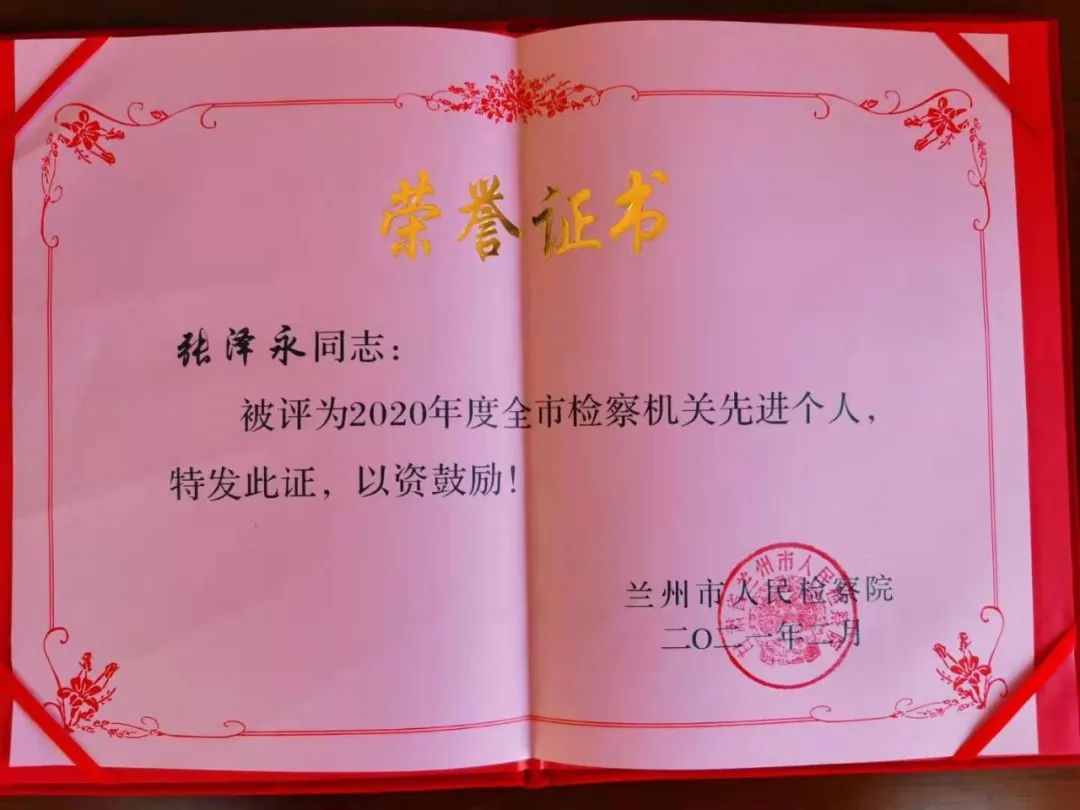 荣誉证书
张泽永同志：
被评为2020年度全市检察机关先进个人，
特发此证，以资鼓励！
兰州市人民检察院
二〇二一年二月
甘肃省兰州市人民检察院